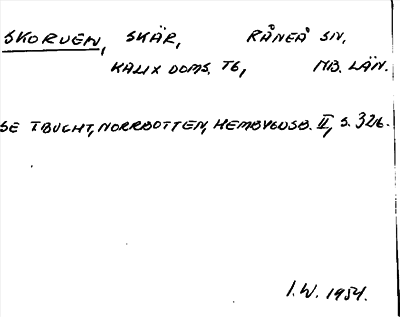 SKORVEN, SKÄR, RÅNEÅ SN,
KALIX DOMS. TG, NB. LÄN.
SE T BUCHT, NORRBOTTEN, HEMBYGDSB. II, S. 326.
I.W. 1954.